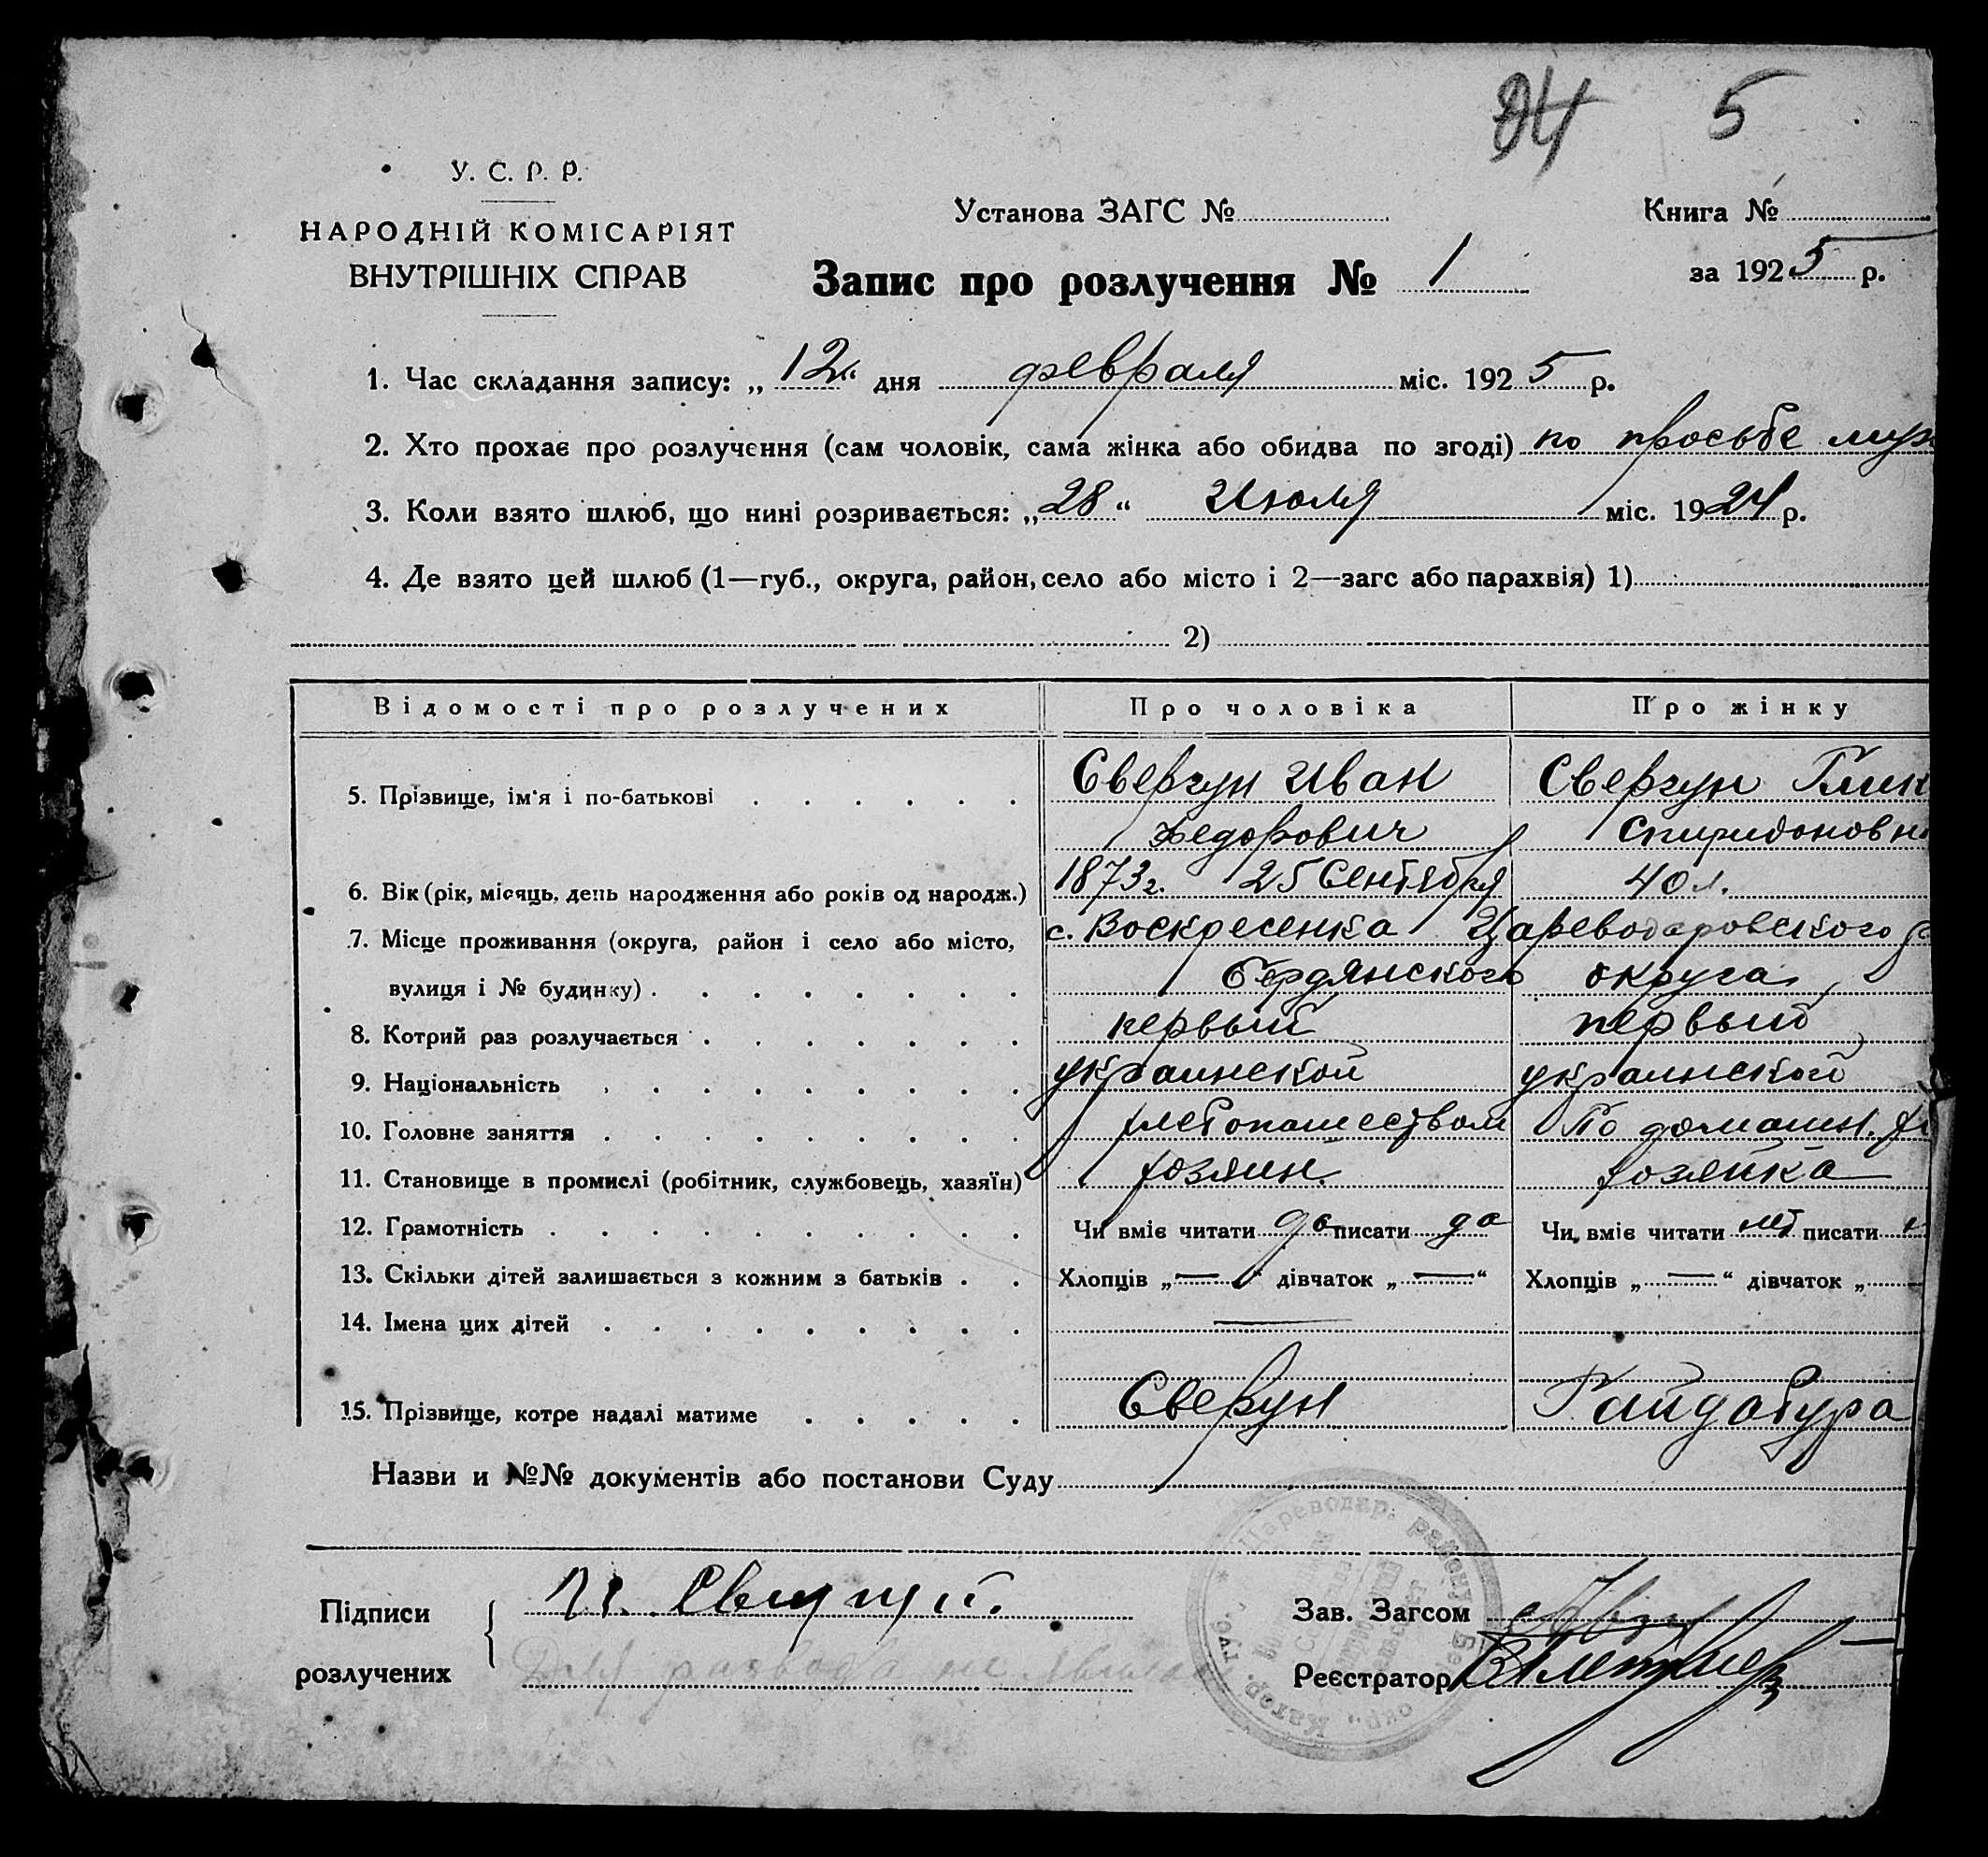 84 5
У. С. Р. Р.
НАРОДНІЙ КОМІСАРІЯТ
ВНУТРІШНІХ СПРАВ
Установа ЗАГС №
Книга №
Запис про розлучення № 1
за 1925 р.
1. Час складання запису: „12“ дня февраля міс. 1925 р.
2. Хто прохає про розлучення (сам чоловік, сама жінка або обидва по згоді) по просьбе муж
3. Коли взято шлюб, що нині розривається: „28“ Июля міс. 1924 р.
4. Де взято цей шлюб (1—губ., округа, район, село або місто і 2—загс або парахвія) 1)
2)
Відомості про розлучених Про чоловіка Про жінку
5. Прізвище, ім'я і по-батькові Сверчун Иван Сверчун Глик
Федорович Спиридоновн
6. Вік (рік, місяць, день народження або років од народж.) 1873 г. 25 Сентября 40 л.
7. Місце проживання (округа, район і село або місто, с. Воскресенка Цареводаровского р
вулиця і № будинку) Бердянского округа
8. Котрий раз розлучається первый первый
9. Національність украинской украинской
10. Головне заняття хлебопашеством По домашн. хо
11. Становище в промислі (робітник, службовець, хазяїн) хозяин. хозяйка
12. Грамотність Чи вміє читати да писати да Чи вміє читати нет писати н
13. Скільки дітей залишається з кожним з батьків Хлопців „—“ дівчаток „—“ Хлопців „—“ дівчаток „
14. Імена цих дітей —
15. Прізвище, котре надалі матиме Сверчун Гайдабура
Назви и №№ документів або постанови Суду
Підписи
розлучених
И.
Для развода не явилась
Зав. Загсом
Реєстратор
Цареводар. району Бер. окр., Катер. губ.